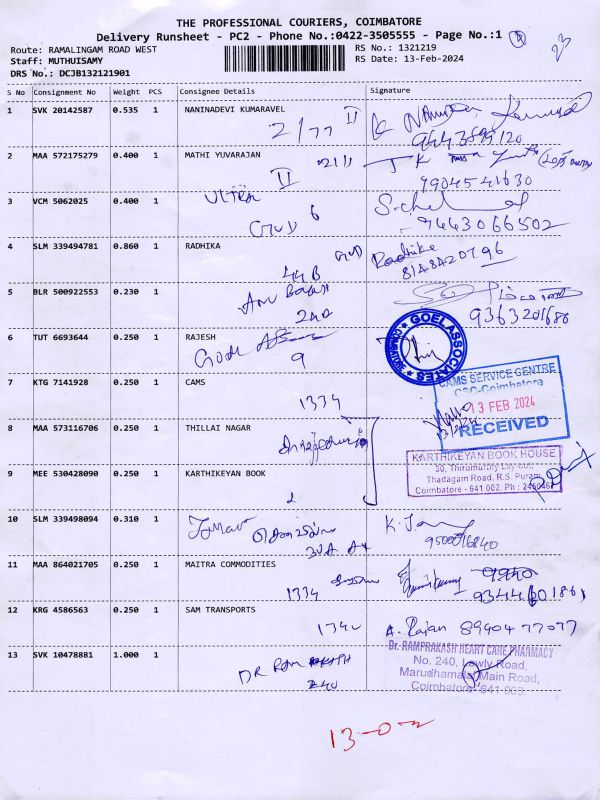 THE PROFESSIONAL COURIERS, COIMBATORE
Delivery Runsheet - PC2 - Phone No.:0422-3505555 - Page No.:1
Route: RAMALINGAM ROAD WEST RS No.: 1321219
Staff: MUTHUISAMY RS Date: 13-Feb-2024
DRS No.: DCJB132121901
S No Consignment No Weight PCS Consignee Details Signature
1 SVK 20142587 0.535 1 NANINADEVI KUMARAVEL
2/77 II
2 MAA 572175279 0.400 1 MATHI YUVARAJAN
9904541630
3 VCM 5062025 0.400 1 ULTRA II
6
9443066502
4 SLM 339494781 0.860 1 RADHIKA
44B Radhike
8148420796
5 BLR 500922553 0.230 1
2nd
9363201686
6 TUT 6693644 0.250 1 RAJESH
9
GOEL ASSOCIATES
COIMBATORE
7 KTG 7141928 0.250 1 CAMS
1334
CAMS SERVICE CENTRE
CSC-Coimbatore
13 FEB 2024
RECEIVED
8 MAA 573116706 0.250 1 THILLAI NAGAR
9 MEE 530428090 0.250 1 KARTHIKEYAN BOOK
KARTHIKEYAN BOOK HOUSE
30, Thirumurthy Lay-out,
Thadagam Road, R.S. Puram,
Coimbatore - 641 002. Ph :
10 SLM 339498094 0.310 1
11 MAA 864021705 0.250 1 MAITRA COMMODITIES
1334
12 KRG 4586563 0.250 1 SAM TRANSPORTS
A. Rajan 8940477077
13 SVK 10478881 1.000 1
DR RAM
240
Dr. RAMPRAKASH HEART CARE PHARMACY
No. 240, Lawly Road,
Marudhamalai Main Road,
Coimbatore - 641 003.
13-0-2